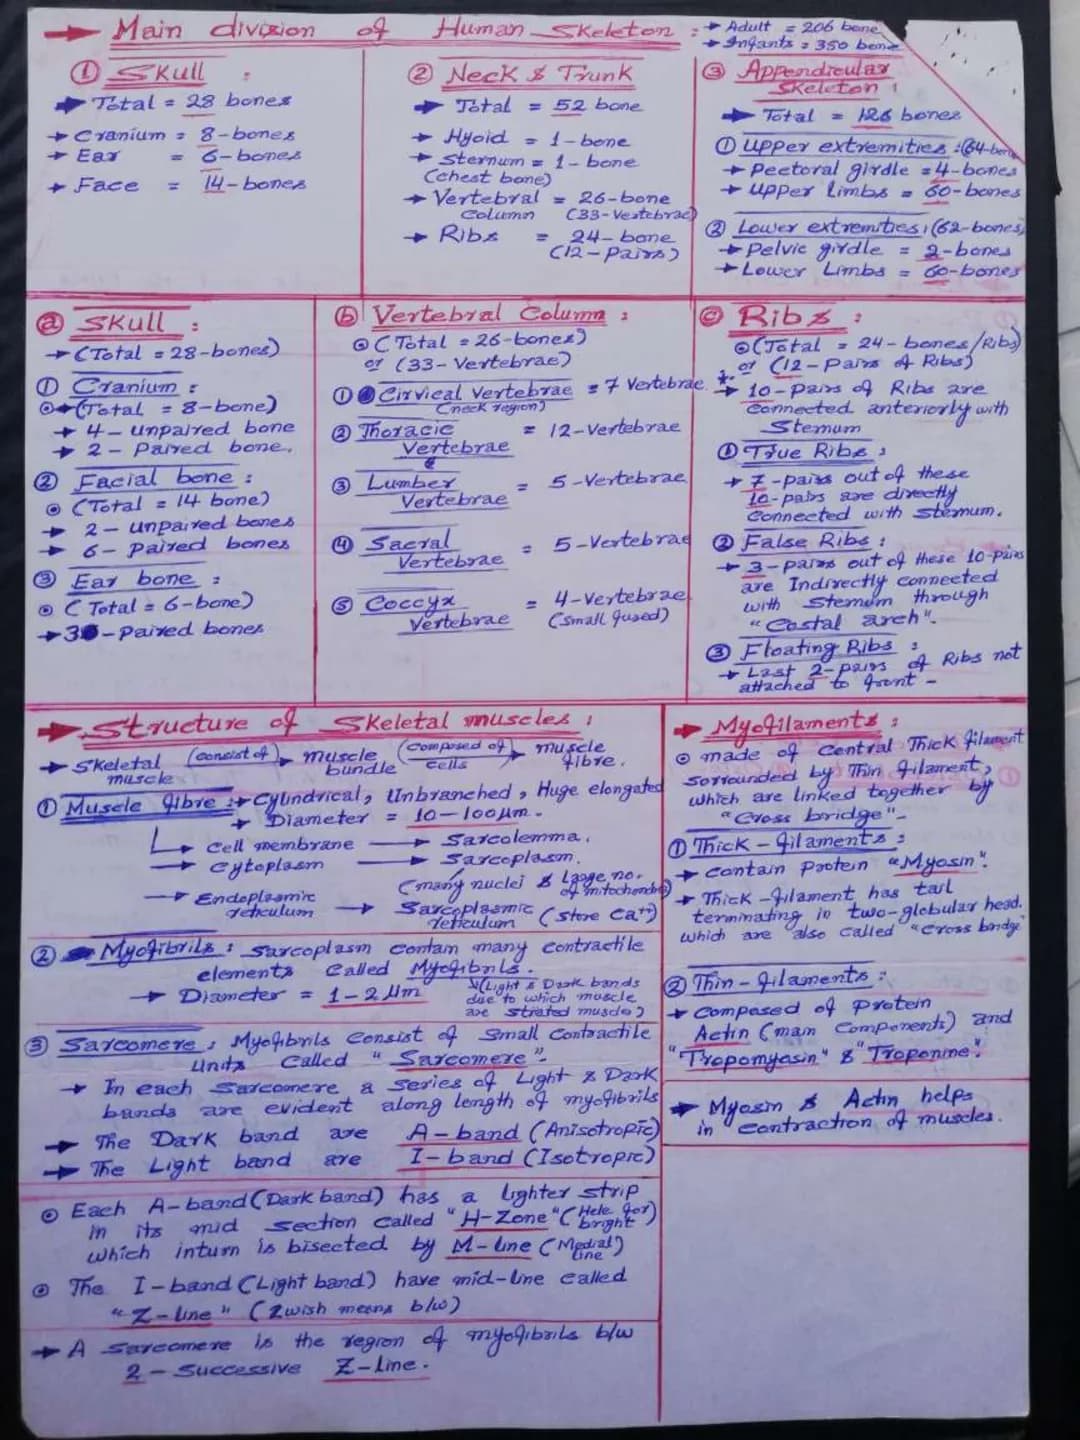 → Main division of Human Skeleton :
→ Adult = 206 bone
→ Infants = 350 bone
① Skull :
→ Total = 28 bones
→ Cranium = 8-bones
→ Ear = 6-bones
→ Face = 14-bones
② Neck & Trunk
→ Total = 52 bone
→ Hyoid = 1-bone
→ Sternum = 1-bone
(chest bone)
→ Vertebral = 26-bone
column (33-Vertebrae)
→ Ribs = 24-bone
(12-Pairs)
③ Appendicular
Skeleton :
→ Total = 126 bones
① Upper extremities :(64-bone
→ Pectoral girdle = 4-bones
→ Upper Limbs = 60-bones
② Lower extremities: (62-bones)
→ Pelvic girdle = 2-bones
→ Lower Limbs = 60-bones
ⓐ Skull :
→ (Total = 28-bones)
① Cranium :
⊙→(Total = 8-bone)
→ 4-unpaired bone
→ 2-Paired bone.
② Facial bone :
⊙ (Total = 14 bone)
→ 2-unpaired bones
→ 6-Paired bones
③ Ear bone :
⊙ (Total = 6-bone)
→ 3-Paired bones
ⓑ Vertebral Column :
⊙ (Total = 26-bones)
or (33-Vertebrae)
① Cirvical Vertebrae = 7 Vertebrae.
(neck region)
② Thoracic = 12-Vertebrae
Vertebrae
③ Lumber = 5-Vertebrae
Vertebrae
④ Sacral = 5-Vertebrae
Vertebrae
⑤ Coccyx = 4-Vertebrae
Vertebrae (small fused)
ⓒ Ribs :
⊙(Total = 24-bones/Ribs)
or (12-Pairs of Ribs)
→ 10-Pairs of Ribs are
connected anteriorly with
Sternum
① True Ribs :
→ 7-pairs out of these
10-pairs are directly
Connected with sternum.
② False Ribs :
→ 3-pairs out of these 10-pairs
are Indirectly connected
with Sternum through
"Costal arch".
③ Floating Ribs :
→ Last 2-pairs of Ribs not
attached to front -
→ Structure of Skeletal muscles :
→ Skeletal muscle (consist of)→ muscle bundle (composed of)→ cells muscle fibre.
① Muscle fibre :→ Cylindrical, Unbranched, Huge elongated
→ Diameter = 10-100µm.
→ Cell membrane → Sarcolemma.
→ Cytoplasm → Sarcoplasm.
(many nuclei & Large no. of mitochondria)
→ Endoplasmic reticulum → Sarcoplasmic reticulum (store Ca+)
② Myofibrils : Sarcoplasm contain many contractile
elements called Myofibrils.
→ Diameter = 1-2 µm
(Light & Dark bands
due to which muscle
are striated muscle)
③ Sarcomere : Myofibrils consist of small contractile
Units called "Sarcomere".
→ In each sarcomere a series of Light & Dark
bands are evident along length of myofibrils
→ The Dark band are A-band (Anisotropic)
→ The Light band are I-band (Isotropic)
⊙ Each A-band (Dark band) has a lighter strip
in its mid section called "H-Zone" (Hele for bright)
which inturn is bisected by M-line (Medial line)
⊙ The I-band (Light band) have mid-line called
"Z-line" (Zwish means b/w)
→ A sarcomere is the region of myofibrils b/w
2-Successive Z-Line.
→ Myofilaments :
⊙ made of Central Thick filament
sorrounded by Thin filament,
which are linked together by
"Cross bridge"-
① Thick-filaments :
→ contain Protein "Myosin".
→ Thick-filament has tail
terminating in two-globular head.
which are also called "Cross bridge
② Thin-filaments :
→ Composed of protein
Actin (main Components) and
"Tropomyosin" & "Troponine".
→ Myosin & Actin helps
in contraction of muscles.